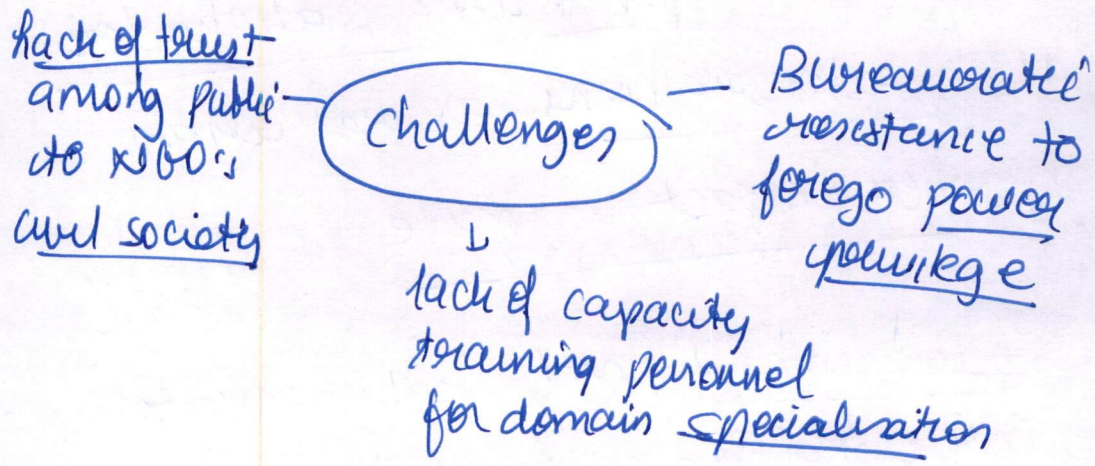 Challenges
Lack of trust
among public
to NGO's
civil society
Bureaucratic
resistance to
forego power
privilege
lack of capacity
training personnel
for domain specialisation